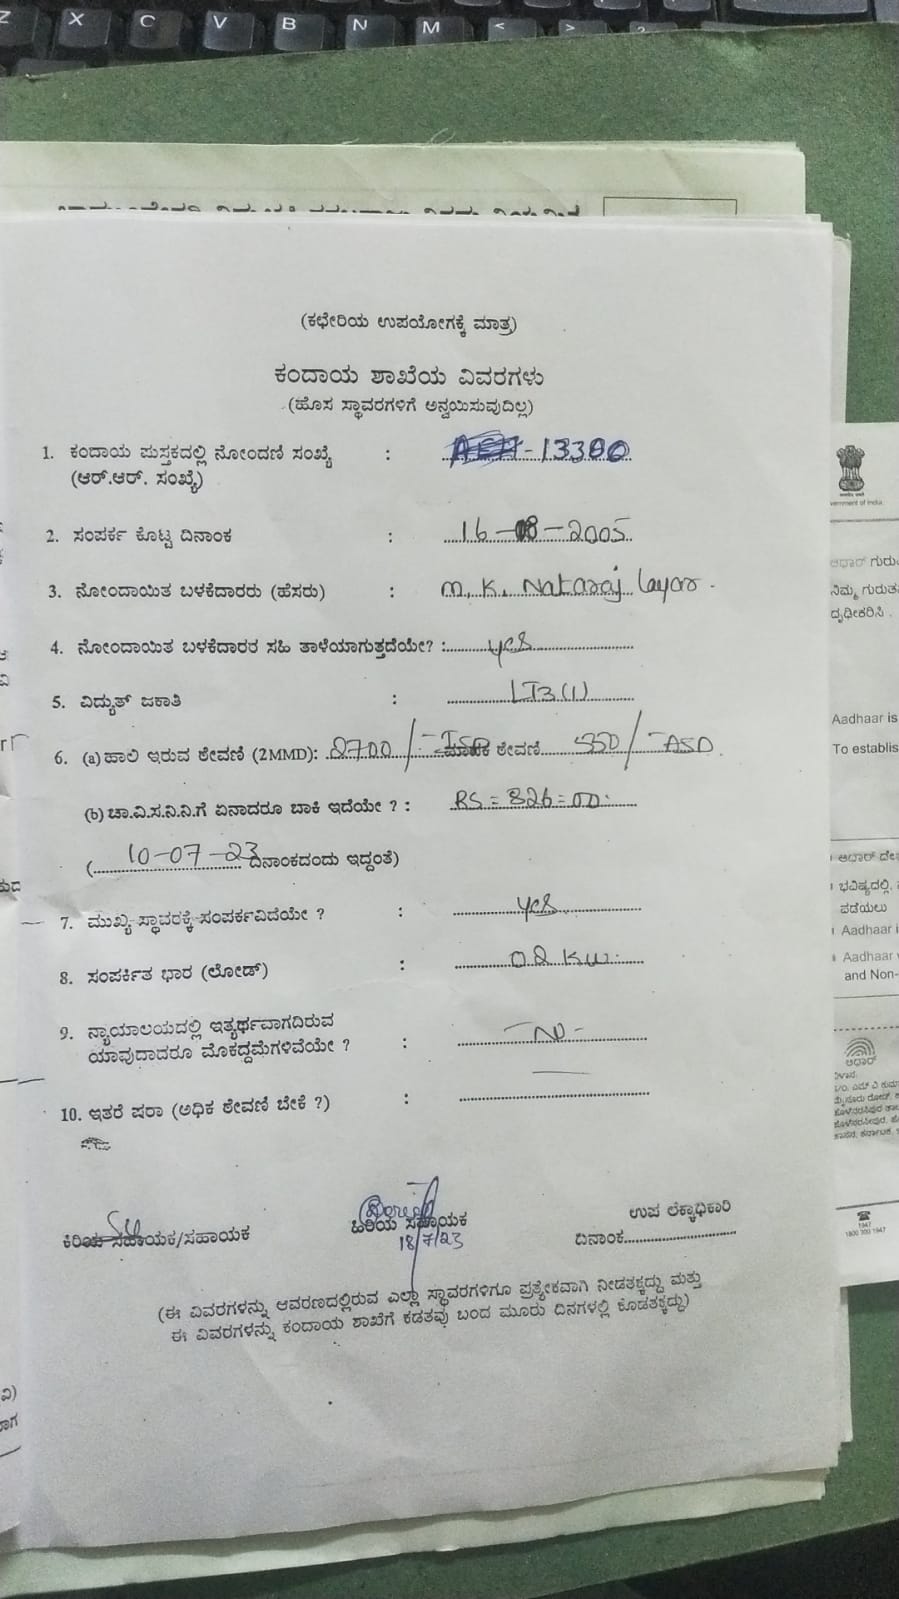 Z X C V B N M < > ?
(ಕಛೇರಿಯ ಉಪಯೋಗಕ್ಕೆ ಮಾತ್ರ)
ಕಂದಾಯ ಶಾಖೆಯ ವಿವರಗಳು
(ಹೊಸ ಸ್ಥಾವರಗಳಿಗೆ ಅನ್ವಯಿಸುವುದಿಲ್ಲ)
1. ಕಂದಾಯ ಪುಸ್ತಕದಲ್ಲಿ ನೋಂದಣಿ ಸಂಖ್ಯೆ : -13380
(ಆರ್.ಆರ್. ಸಂಖ್ಯೆ)
2. ಸಂಪರ್ಕ ಕೊಟ್ಟ ದಿನಾಂಕ : 16-08-2005
3. ನೋಂದಾಯಿತ ಬಳಕೆದಾರರು (ಹೆಸರು) : M. K. Nataraj
4. ನೋಂದಾಯಿತ ಬಳಕೆದಾರರ ಸಹಿ ತಾಳೆಯಾಗುತ್ತದೆಯೇ? : yes
5. ವಿದ್ಯುತ್ ಜಕಾತಿ : LT3(1)
6. (a) ಹಾಲಿ ಇರುವ ಠೇವಣಿ (2MMD): 2700/- ISD ಠೇವಣಿ 550/- ASD
(b) ಚಾ.ವಿ.ಸ.ನಿ.ನಿ.ಗೆ ಏನಾದರೂ ಬಾಕಿ ಇದೆಯೇ ? : RS = 826=00
(10-07-23 ದಿನಾಂಕದಂದು ಇದ್ದಂತೆ)
7. ಮುಖ್ಯ ಸ್ಥಾವರಕ್ಕೆ ಸಂಪರ್ಕವಿದೆಯೇ ? : yes
8. ಸಂಪರ್ಕಿತ ಭಾರ (ಲೋಡ್) : 02 KW
9. ನ್ಯಾಯಾಲಯದಲ್ಲಿ ಇತ್ಯರ್ಥವಾಗದಿರುವ
ಯಾವುದಾದರೂ ಮೊಕದ್ದಮೆಗಳಿವೆಯೇ ? : -NO-
10. ಇತರೆ ಷರಾ (ಅಧಿಕ ಠೇವಣಿ ಬೇಕೆ ?) :
ಕಿರಿಯ ಸಹಾಯಕ/ಸಹಾಯಕ ಹಿರಿಯ ಸಹಾಯಕ ಉಪ ಲೆಕ್ಕಾಧಿಕಾರಿ
18/7/23 ದಿನಾಂಕ
(ಈ ವಿವರಗಳನ್ನು ಆವರಣದಲ್ಲಿರುವ ಎಲ್ಲಾ ಸ್ಥಾವರಗಳಿಗೂ ಪ್ರತ್ಯೇಕವಾಗಿ ನೀಡತಕ್ಕದ್ದು ಮತ್ತು
ಈ ವಿವರಗಳನ್ನು ಕಂದಾಯ ಶಾಖೆಗೆ ಕಡತವು ಬಂದ ಮೂರು ದಿನಗಳಲ್ಲಿ ಕೊಡತಕ್ಕದ್ದು)
ಆಧಾರ್
ನಿಮ್ಮ
ದೃಢೀಕರಿಸಿ .
Aadhaar is
ಆಧಾರ್
ಭವಿಷ್ಯದಲ್ಲಿ,
ಪಡೆಯಲು
Aadhaar
Aadhaar
and Non-
ಆಧಾರ್
1947
1800 300 1947